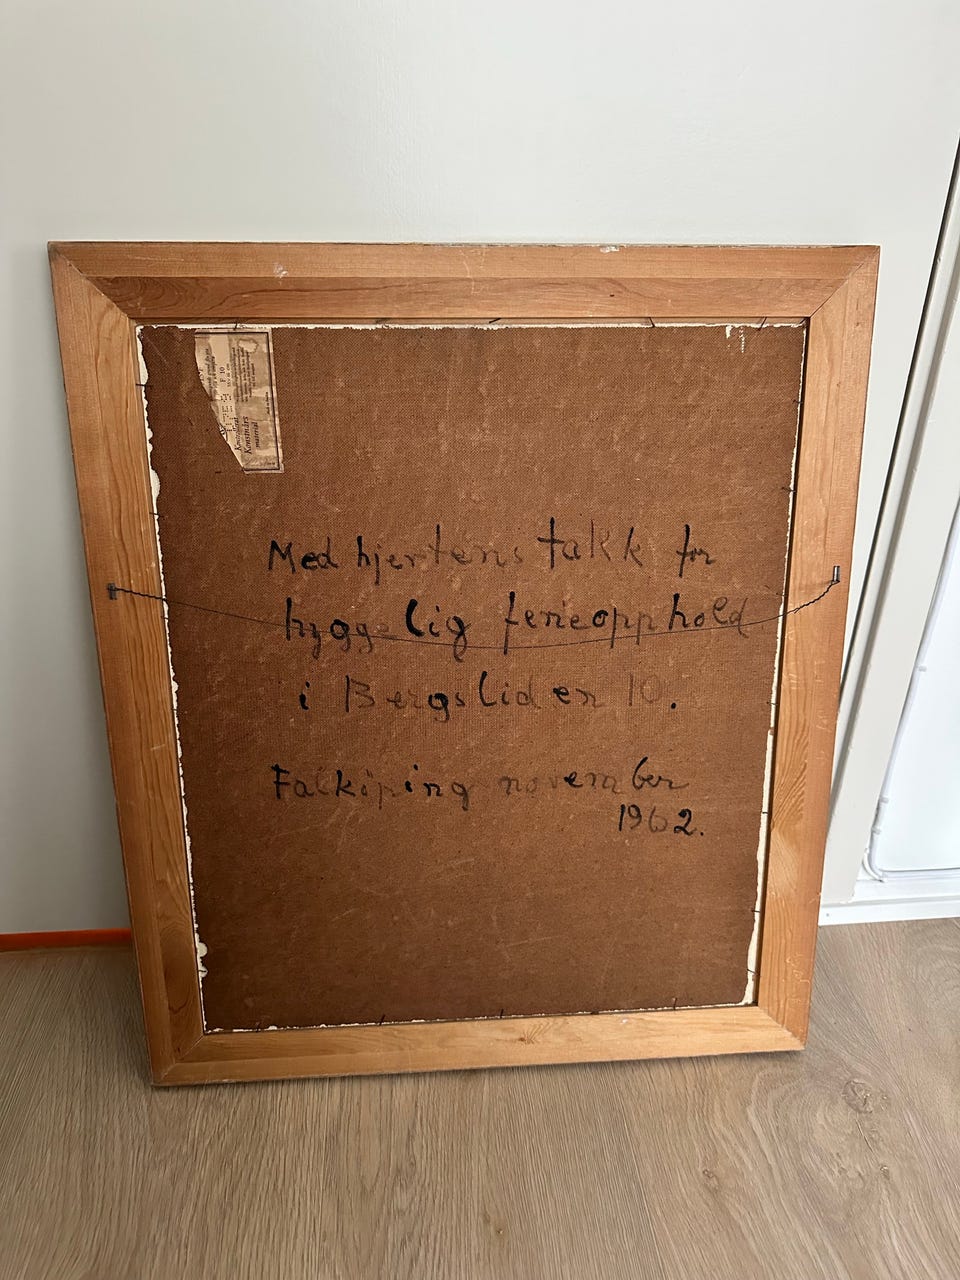 Konstnärs
material
F 10
Med hjertens takk for
hyggelig ferieopphold
i Bergsliden 10.
Falkiping november
1962.